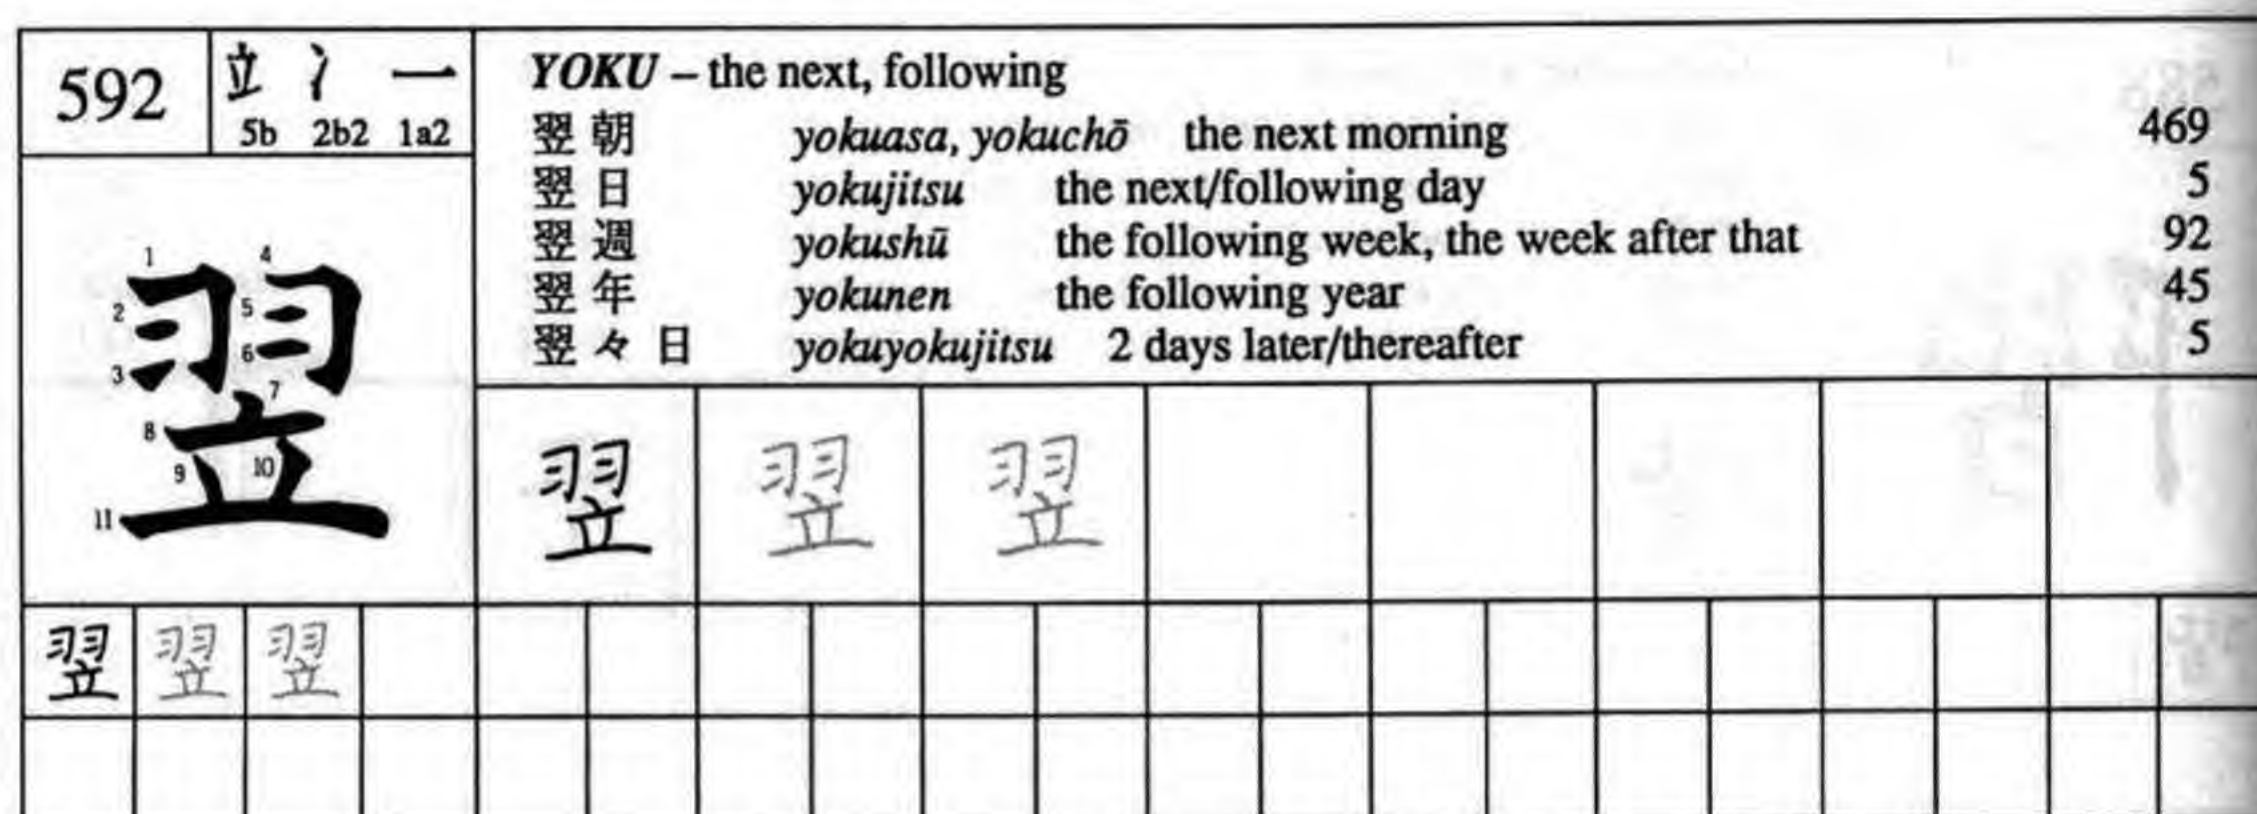 592
立 冫 一
5b 2b2 1a2
YOKU – the next, following
翌朝 yokuasa, yokuchō the next morning 469
翌日 yokujitsu the next/following day 5
翌週 yokushū the following week, the week after that 92
翌年 yokunen the following year 45
翌々日 yokuyokujitsu 2 days later/thereafter 5
翌
1 4
2 5
3 6
7
8
9 10
11
翌 翌 翌
翌 翌 翌